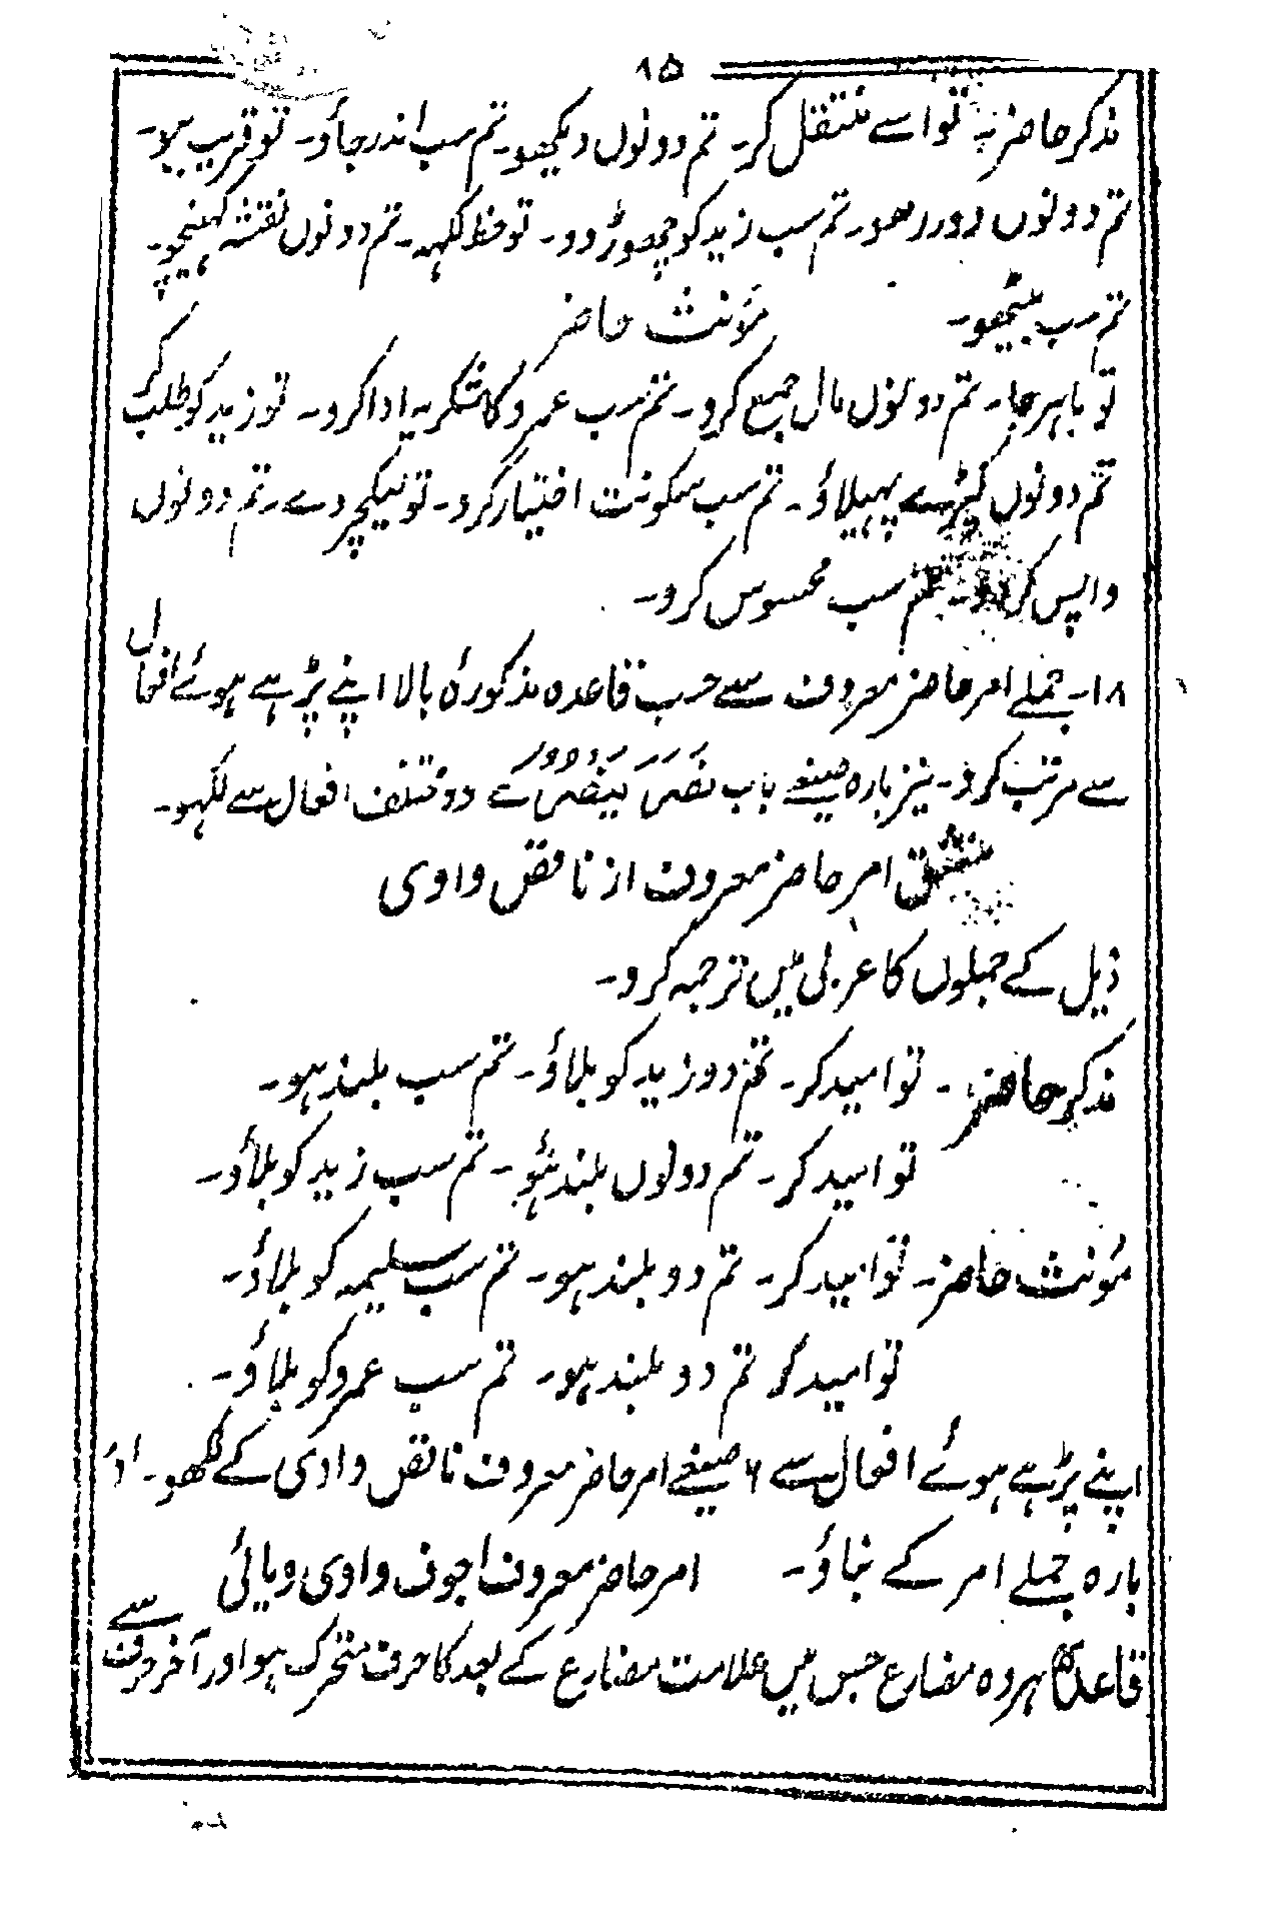 ۱۵
مذکر حاضر۔ تو اسے منتقل کر۔ تم دونوں دیکھو۔ تم سب اندر جاؤ۔ تو قریب ہو۔
تم دونوں دور رھو۔ تم سب زید کو چھوڑ دو۔ تو خط لکہہ۔ تم دونوں نقشہ کہینچو۔
تم سب بیٹھو۔ مؤنث حاضر
تو باہر جا۔ تم دونوں مال جمع کرو۔ تم سب عمرو کا شکریہ ادا کرو۔ تو زید کو طلب کر
تم دونوں کپڑے پہیلاؤ۔ تم سب سکونت اختیار کرو۔ تو لیکچر دے۔ تم دونوں
واپس کرو۔ تم سب محسوس کرو۔
۱۸۔ جملے امر حاضر معروف سے حسب قاعدہ مذکورۂ بالا اپنے پڑہے ہوئے افعال
سے مرتب کرو۔ نیز بارہ صیغے باب نَصَرَ یَنْصُرُ کے دو مختلف افعال سے لکہو۔
مشق امر حاضر معروف از ناقص واوی
ذیل کے جملوں کا عربی میں ترجمہ کرو۔
مذکر حاضر۔ تو امید کر۔ تم دو زید کو بلاؤ۔ تم سب بلند ہو۔
تو امید کر۔ تم دونوں بلند ہو۔ تم سب زید کو بلاؤ۔
مؤنث حاضر۔ تو امید کر۔ تم دو بلند ہو۔ تم سب سلیمہ کو بلاؤ۔
تو امید کر تم دو بلند ہو۔ تم سب عمرو کو بلاؤ۔
اپنے پڑہے ہوئے افعال سے ۶ صیغے امر حاضر معروف ناقص وادی کے لکھو۔ اور
بارہ جملے امر کے بناؤ۔ امر حاضر معروف اجوف واوی ویائی
قاعدہ ہر وہ مضارع جس میں علامت مضارع کے بعد کا حرف متحرک ہو اور آخر حرف سے